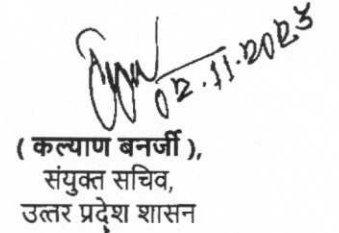 02.11.2023
( कल्याण बनर्जी ),
संयुक्त सचिव,
उत्तर प्रदेश शासन